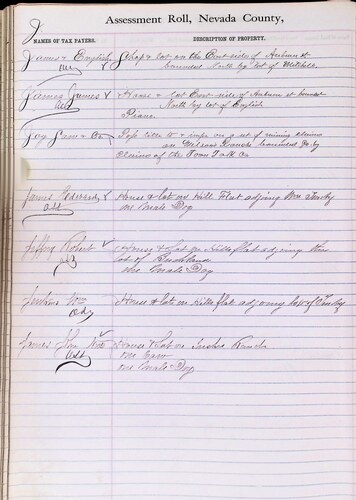 J
Assessment Roll, Nevada County,
NAMES OF TAX PAYERS.
DESCRIPTION OF PROPERTY.
James & English Shop & lot on the East side of Auburn st
bounded North by lot of
James James House & lot East side of Auburn st bounded
North by lot of English
Piano
Joy & Co Poss title to & imps on a set of mining claims
on Wilson Ranch bounded by
claims of the Town Talk Co
James Edward House & lot on Hill Flat adjoing Wm
one male Dog
Jeffrey Robert House & Lot on Hills flat adjoing the
lot of
one male Dog
Jenkins Wm House & lot on Hills flat adjoing lot of
James House & Lot on Ranch
one Cow
one male Dog